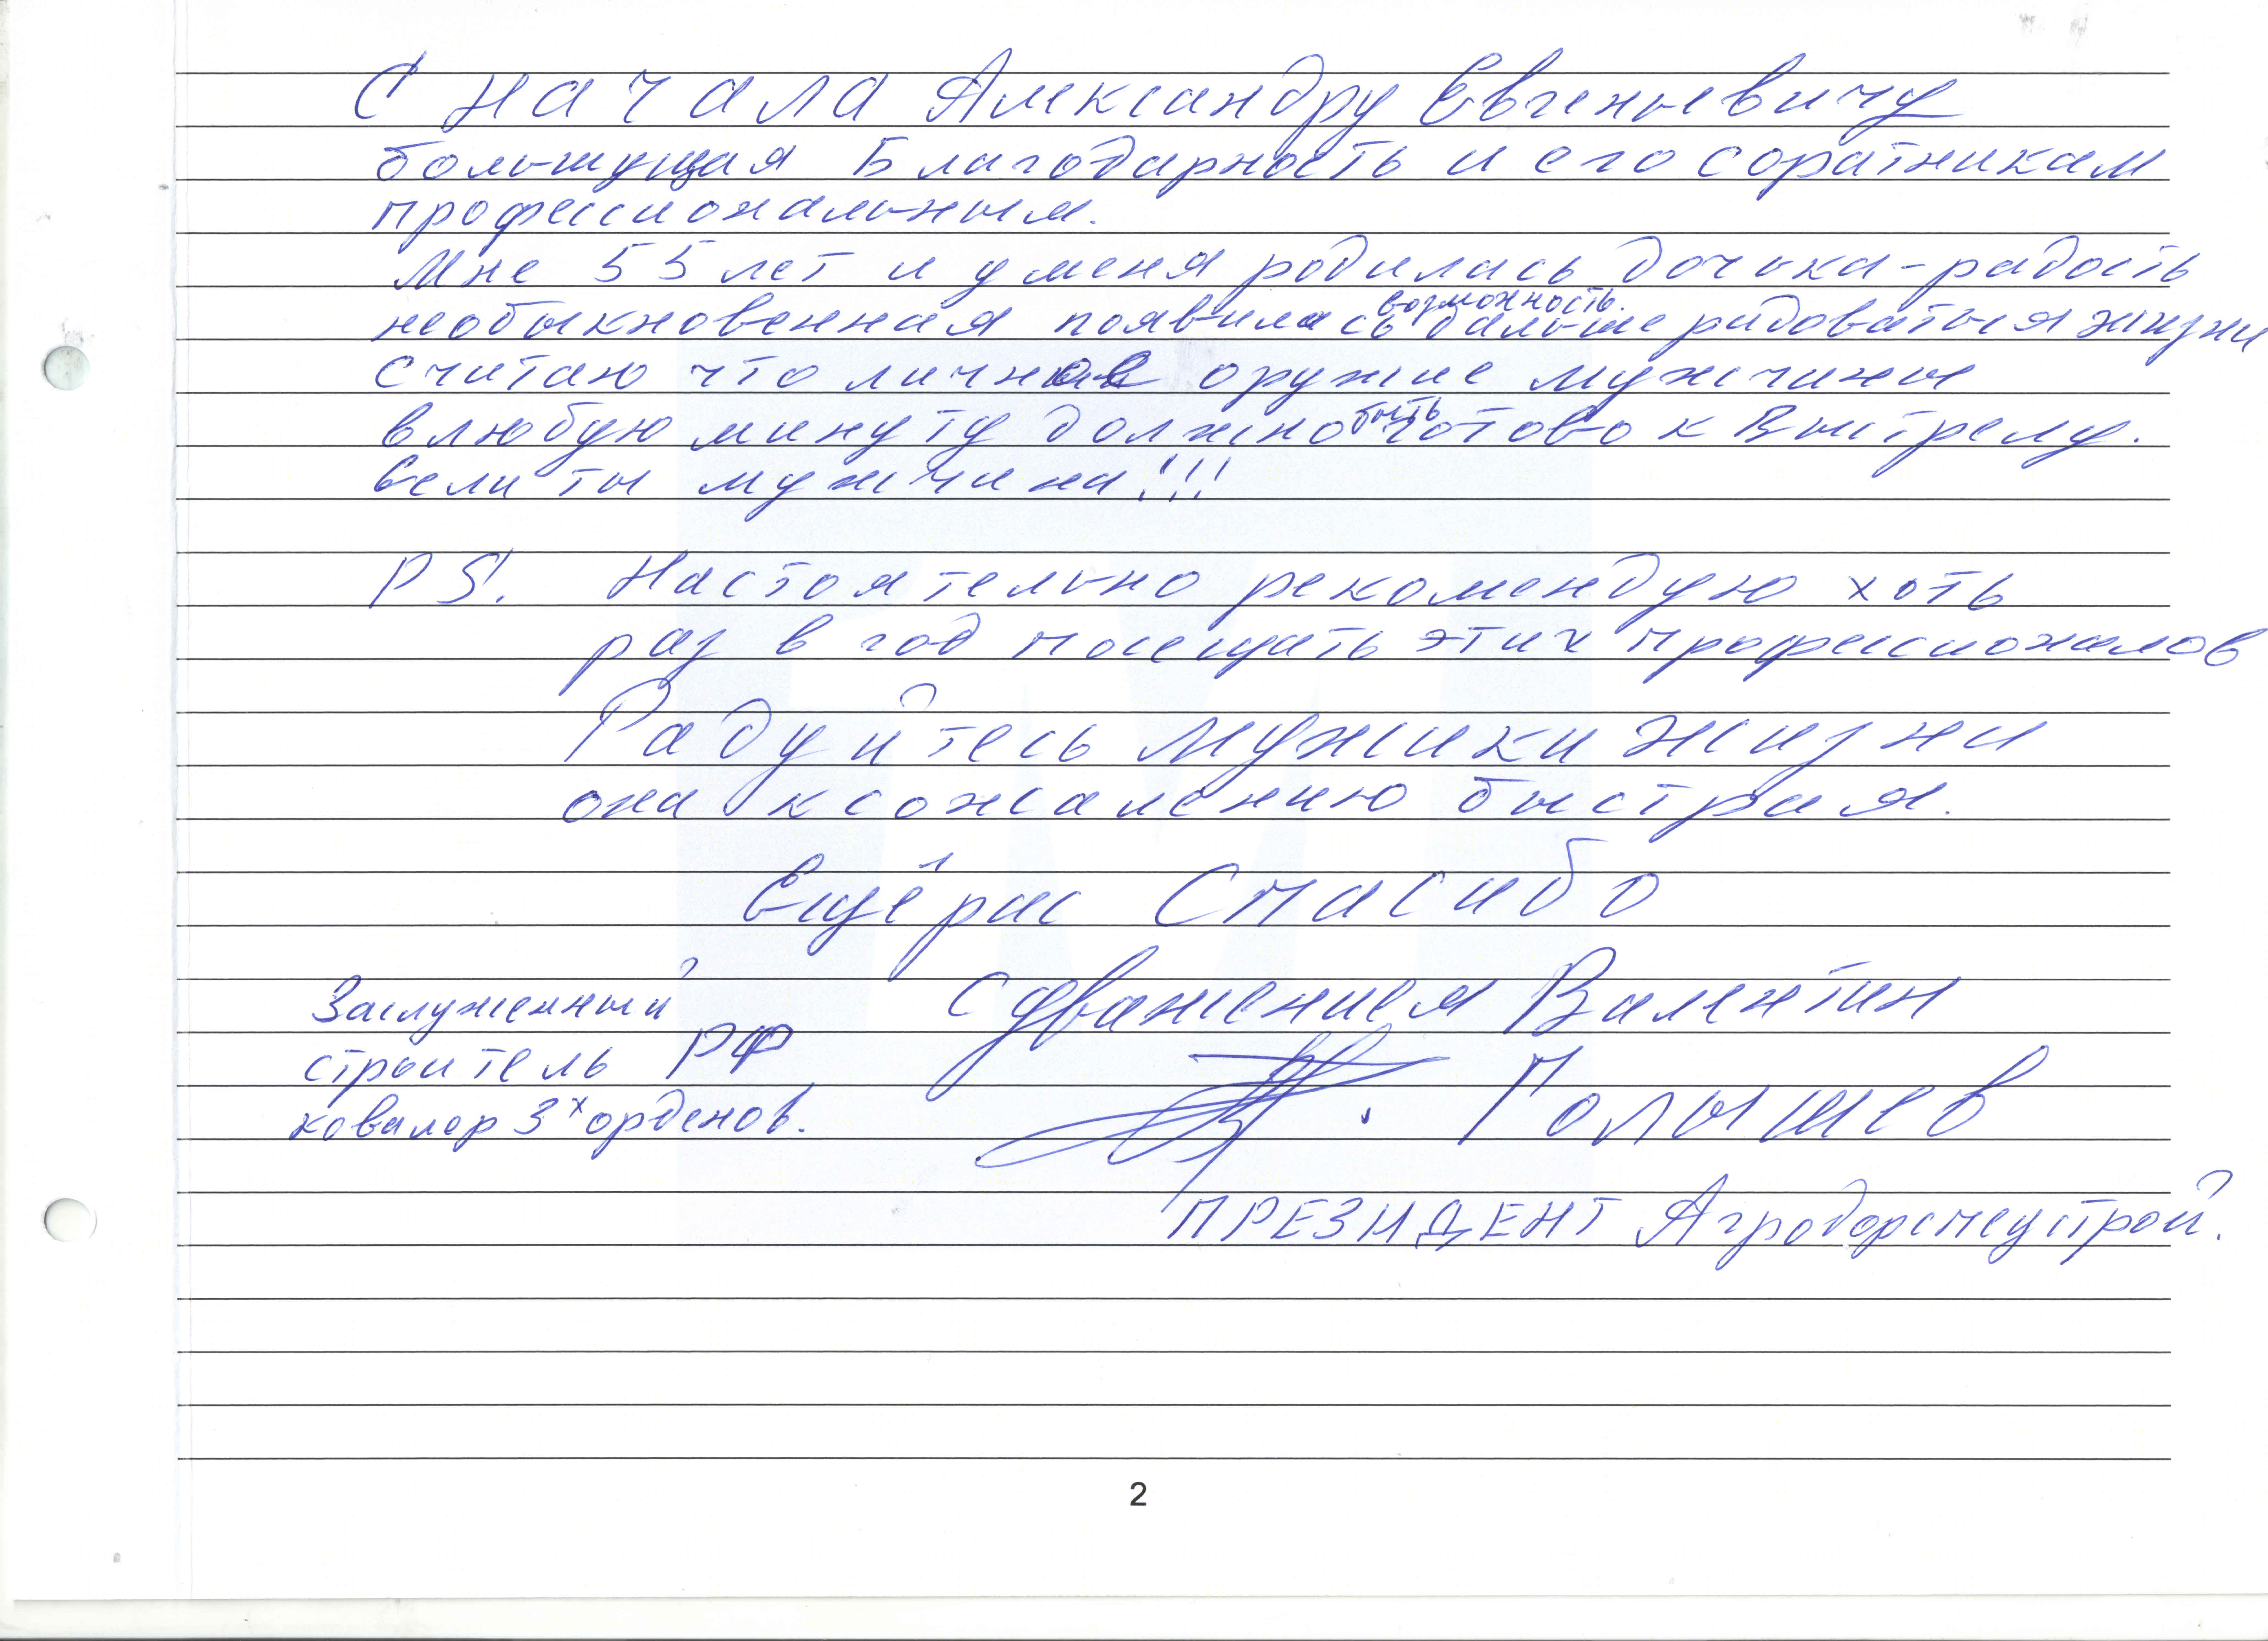 С начала Александру Евгеньевичу
большущая Благодарность и его соратникам
профессиональным.
Мне 55 лет и у меня родилась дочька - радость
необыкновенная появилась возможность дальше радоваться жизни
считаю что личное оружие мужчины
в любую минуту должно быть готово к Выстрелу.
Если ты мужчина!!!
PS. Настоятельно рекомендую хоть
раз в год посещать этих профессионалов
Радуйтесь мужики жизни
она к сожалению быстрая.
Ещё рас Спасибо
С уважением Валентин
Полышев
ПРЕЗИДЕНТ Агродорспецстрой.
Заслуженный
строитель РФ
ковалер 3х орденов.
2